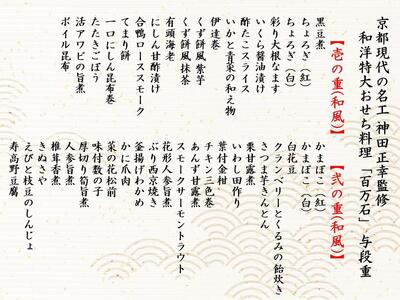 京都現代の名工 神田正幸監修
和洋特大おせち料理 「百万石」 与段重
【壱の重(和風)】
黒豆煮
ちょろぎ(紅)
ちょろぎ(白)
彩り大根なます
いくら醤油漬け
酢たこスライス
いかと青菜の和え物
伊達巻
くず餅風紫芋
くず餅風抹茶
有頭海老
にしん甘酢漬け
合鴨ローススモーク
てまり餅
一口にしん昆布巻
たたきごぼう
活アワビの旨煮
ボイル昆布
【弐の重(和風)】
かまぼこ(紅)
かまぼこ(白)
白花豆
クランベリーとくるみの飴炊き
さつま芋きんとん
栗甘露煮
いわし田作り
葉付金柑
チキン三色巻
あんず甘露煮
スモークサーモントラウト
花形人参旨煮
ぶり西京焼き
釜揚げわかめ
かに爪肉
菜の花松前
味付数の子
厚切り筍旨煮
人参旨煮
椎茸香煮
きぬさや
えびと枝豆のしんじょ
寿高野豆腐